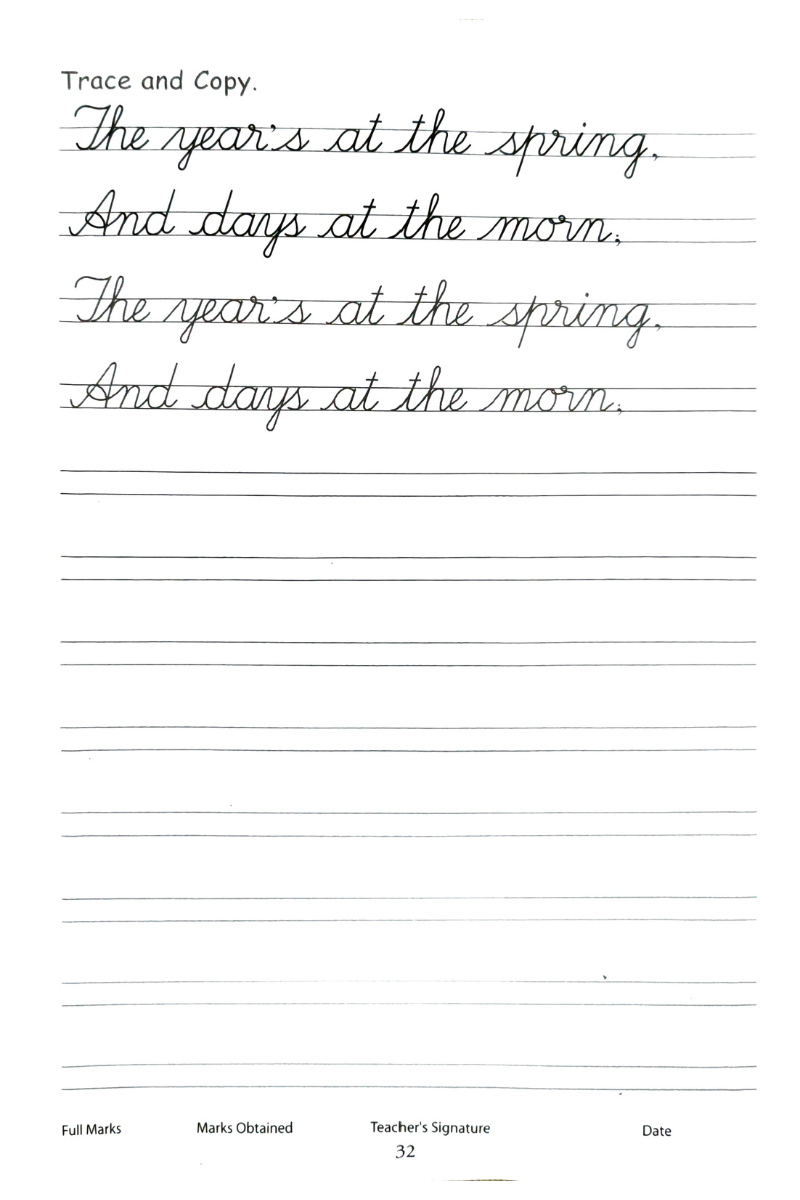 Trace and Copy.
The year's at the spring,
And days at the morn;
The year's at the spring,
And days at the morn;
Full Marks Marks Obtained Teacher's Signature Date
32